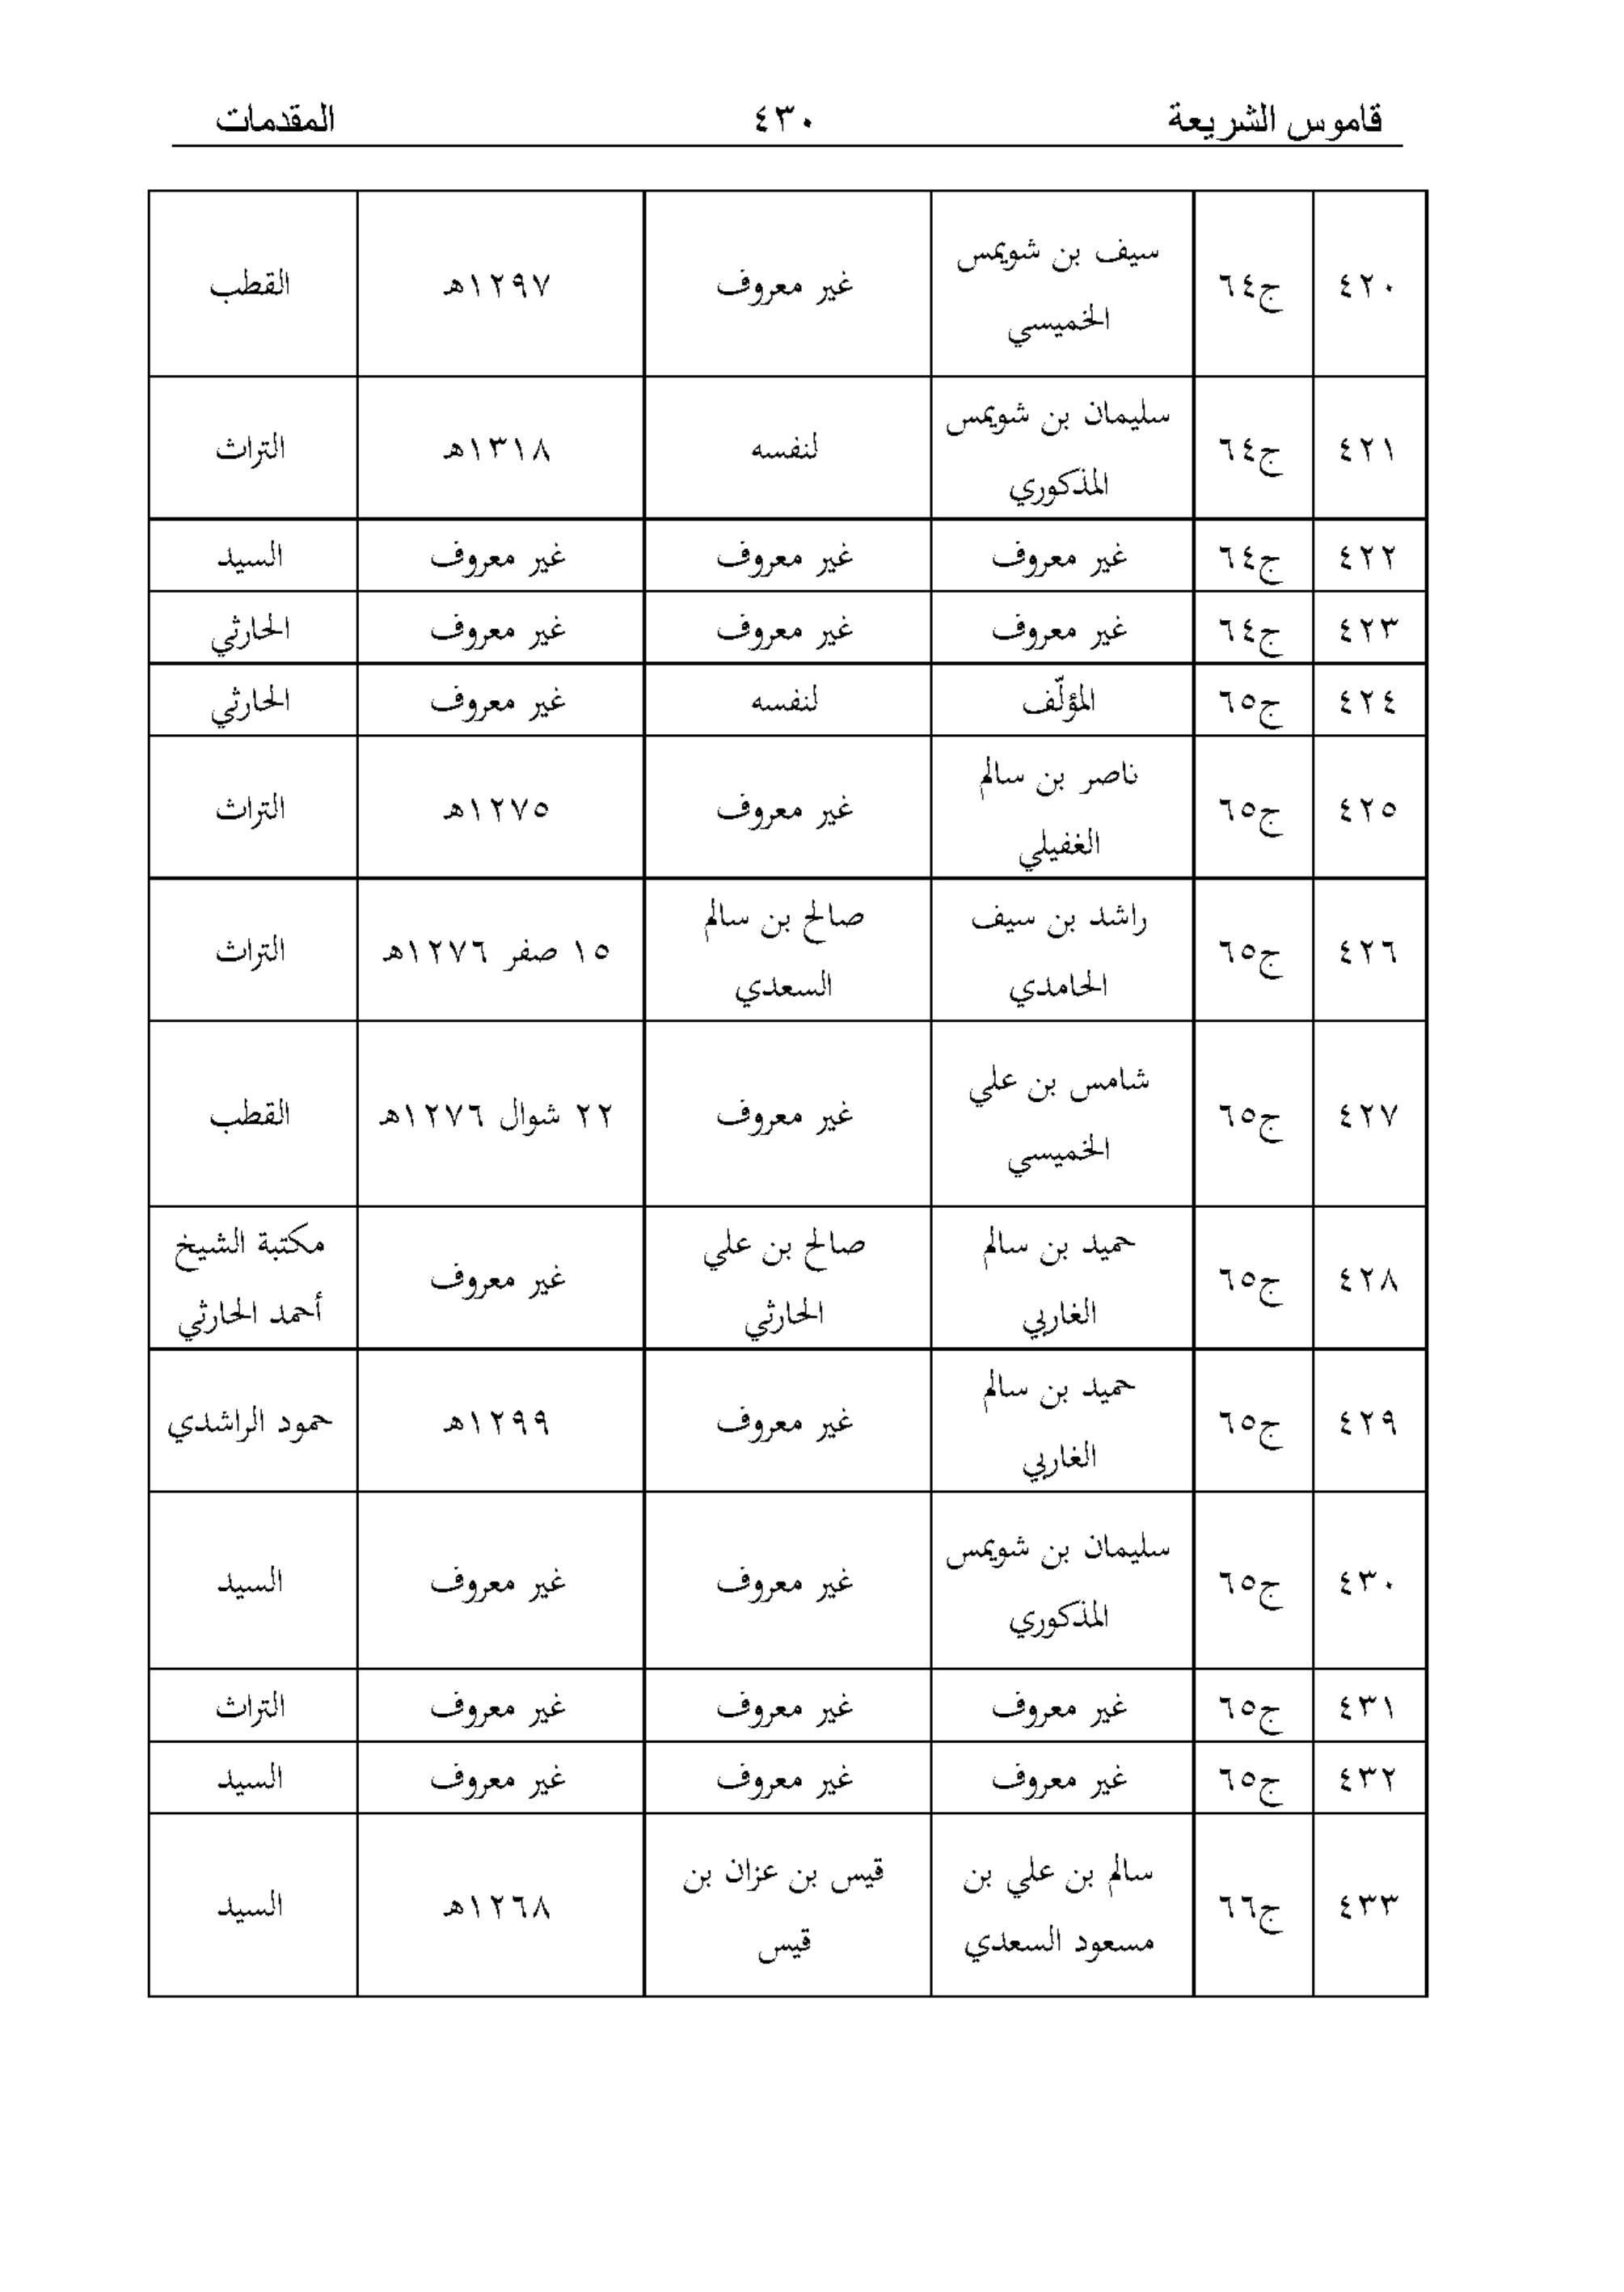 قاموس الشريعة ٤٣٠ المقدمات
٤٢٠ ج٦٤ سيف بن شويمس الخميسي غير معروف ١٢٩٧هـ القطب
٤٢١ ج٦٤ سليمان بن شويمس المذكوري لنفسه ١٣١٨هـ التراث
٤٢٢ ج٦٤ غير معروف غير معروف غير معروف السيد
٤٢٣ ج٦٤ غير معروف غير معروف غير معروف الحارثي
٤٢٤ ج٦٥ المؤلّف لنفسه غير معروف الحارثي
٤٢٥ ج٦٥ ناصر بن سالم الغفيلي غير معروف ١٢٧٥هـ التراث
٤٢٦ ج٦٥ راشد بن سيف الحامدي صالح بن سالم السعدي ١٥ صفر ١٢٧٦هـ التراث
٤٢٧ ج٦٥ شامس بن علي الخميسي غير معروف ٢٢ شوال ١٢٧٦هـ القطب
٤٢٨ ج٦٥ حميد بن سالم الغاربي صالح بن علي الحارثي غير معروف مكتبة الشيخ أحمد الحارثي
٤٢٩ ج٦٥ حميد بن سالم الغاربي غير معروف ١٢٩٩هـ حمود الراشدي
٤٣٠ ج٦٥ سليمان بن شويمس المذكوري غير معروف غير معروف السيد
٤٣١ ج٦٥ غير معروف غير معروف غير معروف التراث
٤٣٢ ج٦٥ غير معروف غير معروف غير معروف السيد
٤٣٣ ج٦٦ سالم بن علي بن مسعود السعدي قيس بن عزان بن قيس ١٢٦٨هـ السيد